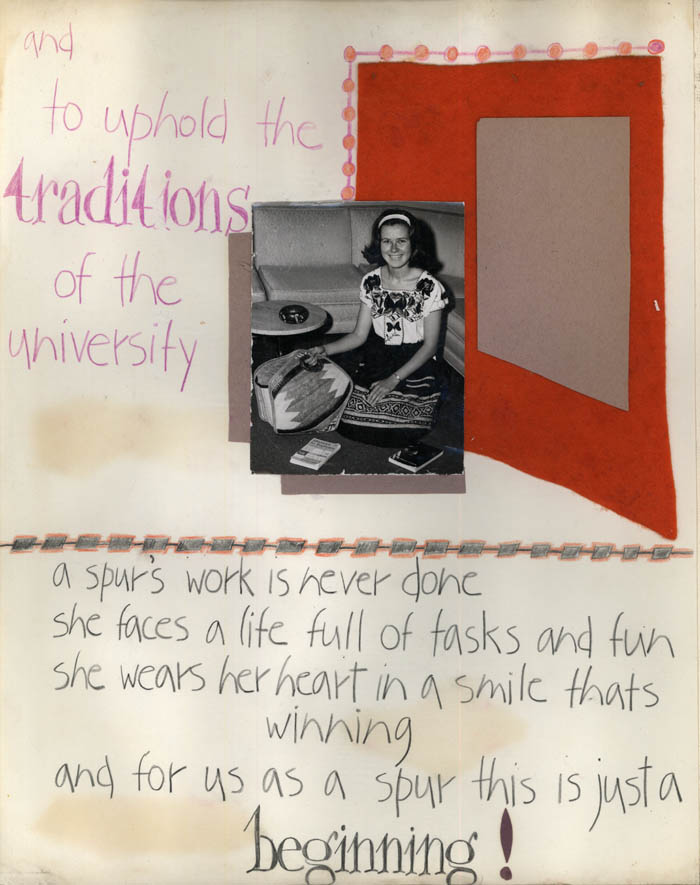 and
to uphold the
traditions
of the
university
a spur's work is never done
she faces a life full of tasks and fun
she wears her heart in a smile thats
winning
and for us as a spur this is just a
beginning!